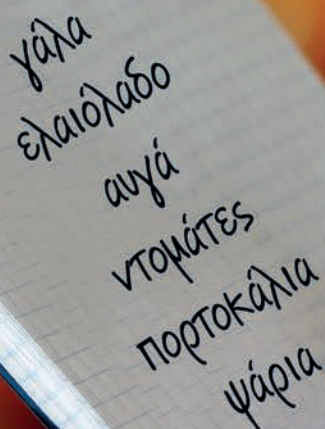 γάλα
ελαιόλαδο
αυγά
ντομάτες
πορτοκάλια
ψάρια